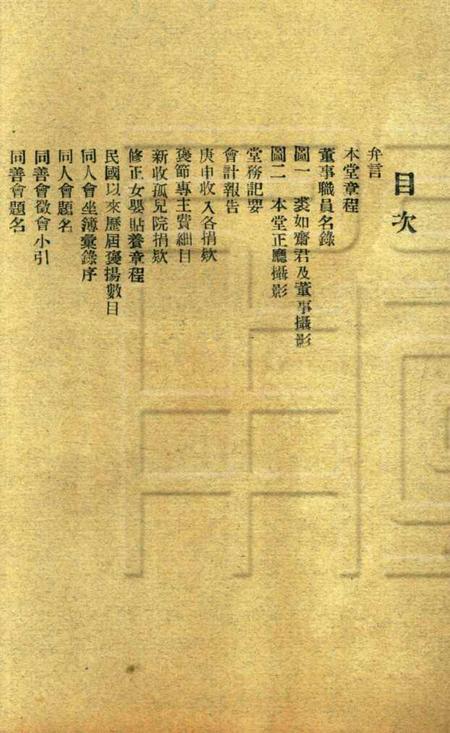 目次
弁言
本堂章程
董事職員名錄
圖一　裘如齋君及董事攝影
圖二　本堂正廳攝影
堂務記要
會計報告
庚申收入各捐欵
褒節專主費細目
新收孤兒院捐欵
修正女嬰貼養章程
民國以來歷屆褒揚數目
同人會坐簿彙錄序
同人會題名
同善會徵會小引
同善會題名